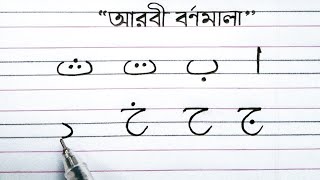 “আরবী বর্ণমালা”
ا ب ت ث
ج ح خ د